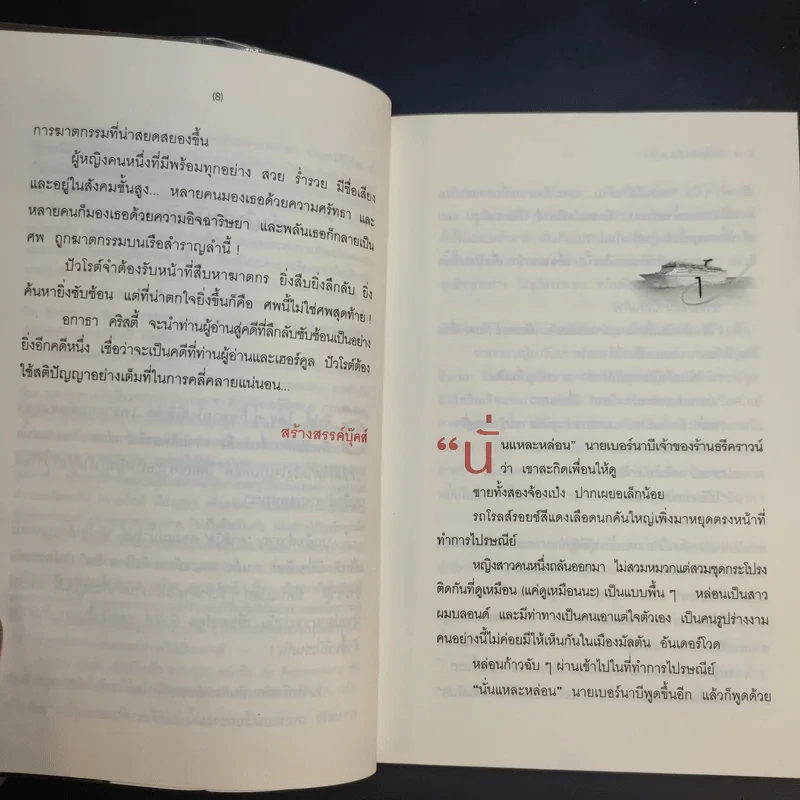 (8)
การฆาตกรรมที่น่าสยดสยองขึ้น
ผู้หญิงคนหนึ่งที่มีพร้อมทุกอย่าง สวย ร่ำรวย มีชื่อเสียง
และอยู่ในสังคมชั้นสูง... หลายคนมองเธอด้วยความศรัทธา และ
หลายคนก็มองเธอด้วยความอิจฉาริษยา และพลันเธอก็กลายเป็น
ศพ ถูกฆาตกรรมบนเรือสำราญลำนี้ !
ปัวโรต์จำต้องรับหน้าที่สืบหาฆาตกร ยิ่งสืบยิ่งลึกลับ ยิ่ง
ค้นหายิ่งซับซ้อน แต่ที่น่าตกใจยิ่งขึ้นก็คือ ศพนี้ไม่ใช่ศพสุดท้าย !
อกาธา คริสตี้ จะนำท่านผู้อ่านสู่คดีที่ลึกลับซับซ้อนเป็นอย่าง
ยิ่งอีกคดีหนึ่ง เชื่อว่าจะเป็นคดีที่ท่านผู้อ่านและเฮอร์คูล ปัวโรต์ต้อง
ใช้สติปัญญาอย่างเต็มที่ในการคลี่คลายแน่นอน...
สร้างสรรค์บุ๊คส์
1
“นั่นแหละหล่อน” นายเบอร์นาบีเจ้าของร้านธรีคราวน์
ว่า เขาสะกิดเพื่อนให้ดู
ชายทั้งสองจ้องเป๋ง ปากเผยอเล็กน้อย
รถโรลส์รอยซ์สีแดงเลือดนกคันใหญ่เพิ่งมาหยุดตรงหน้าที่
ทำการไปรษณีย์
หญิงสาวคนหนึ่งถลันออกมา ไม่สวมหมวกแต่สวมชุดกระโปรง
ติดกันที่ดูเหมือน (แค่ดูเหมือนนะ) เป็นแบบพื้น ๆ หล่อนเป็นสาว
ผมบลอนด์ และมีท่าทางเป็นคนเอาแต่ใจตัวเอง เป็นคนรูปร่างงาม
คนอย่างนี้ไม่ค่อยมีให้เห็นกันในเมืองมัลตัน อันเดอร์โวด
หล่อนก้าวฉับ ๆ ผ่านเข้าไปในที่ทำการไปรษณีย์
“นั่นแหละหล่อน” นายเบอร์นาบีพูดขึ้นอีก แล้วก็พูดด้วย